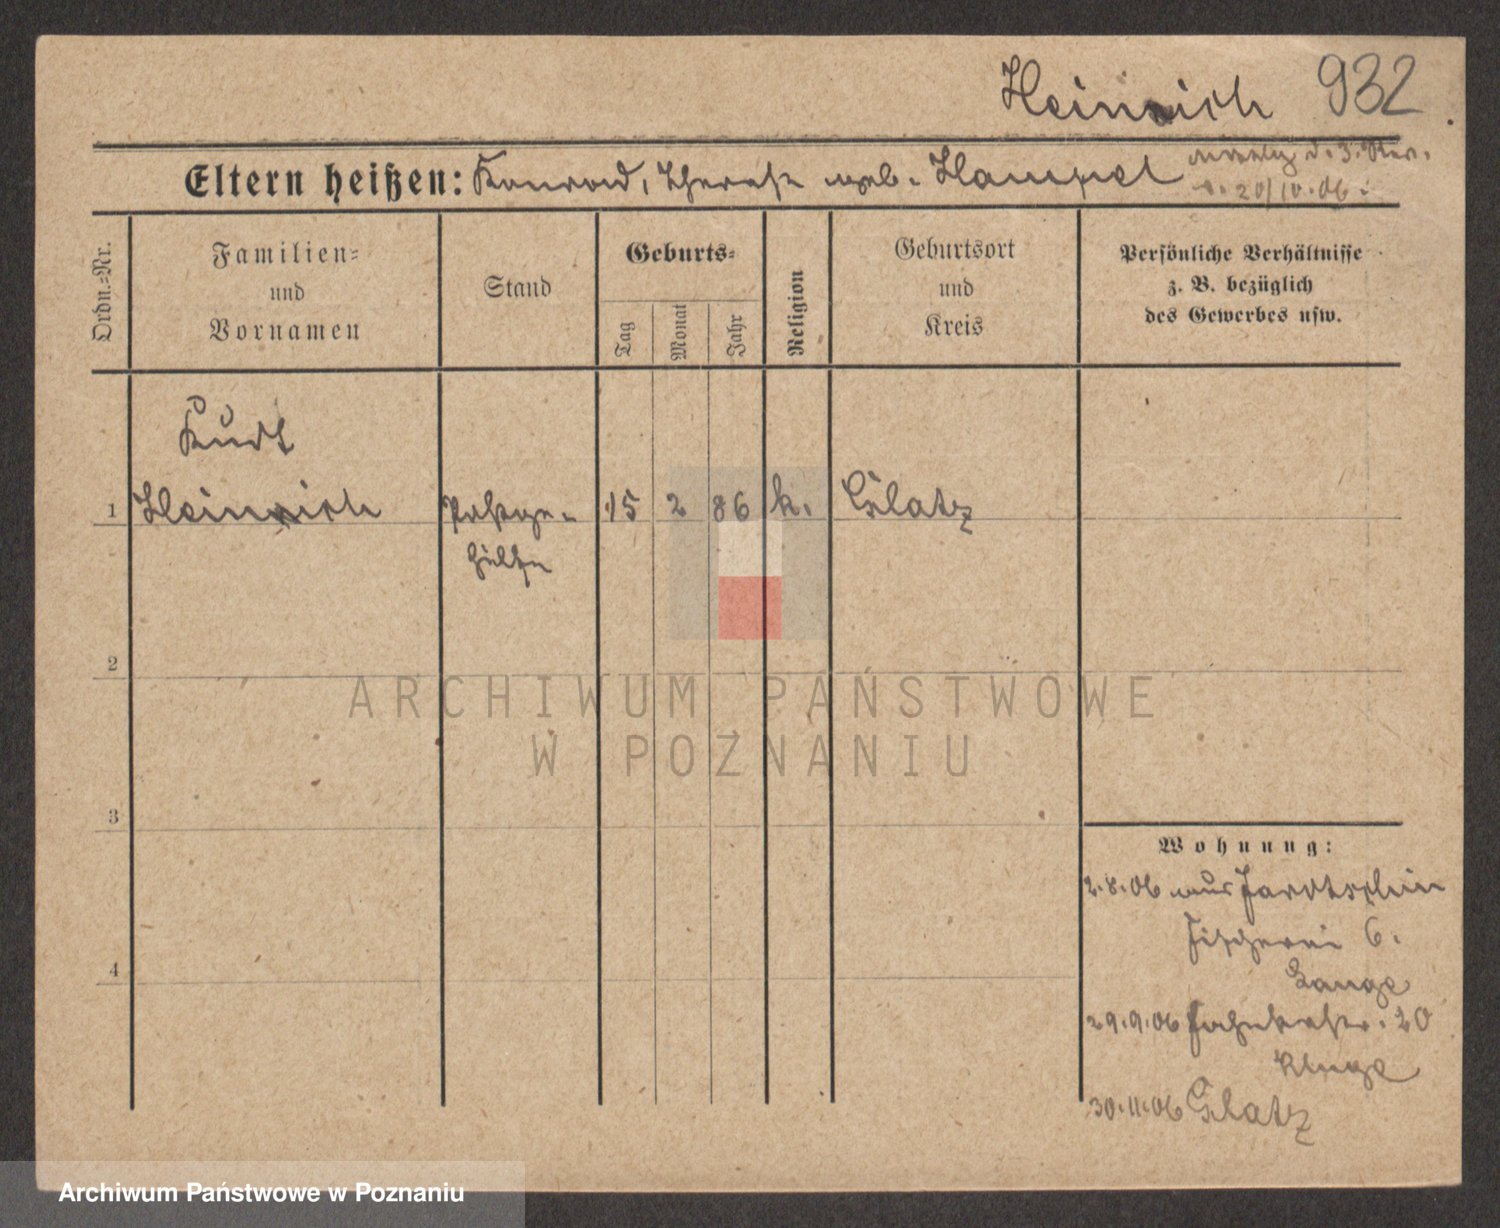 Heinrich 932
Eltern heißen: Konrad, Therese geb. Hampel
v. 20/10.06.
Ordn.=Nr.
Familien=
und
Vornamen
Stand
Geburts=
Tag
Monat
Jahr
Religion
Geburtsort
und
Kreis
Persönliche Verhältnisse
z. B. bezüglich
des Gewerbes usw.
Kurt
1 Heinrich Postge- 15 2 86 k. Glatz
hülfe
2
3
4
Wohnung:
2.8.06 aus Jarotschin
Fischerei 6.
Lange
29.9.06 20
Kluge
30.11.06 Glatz
ARCHIWUM PAŃSTWOWE
W POZNANIU
Archiwum Państwowe w Poznaniu